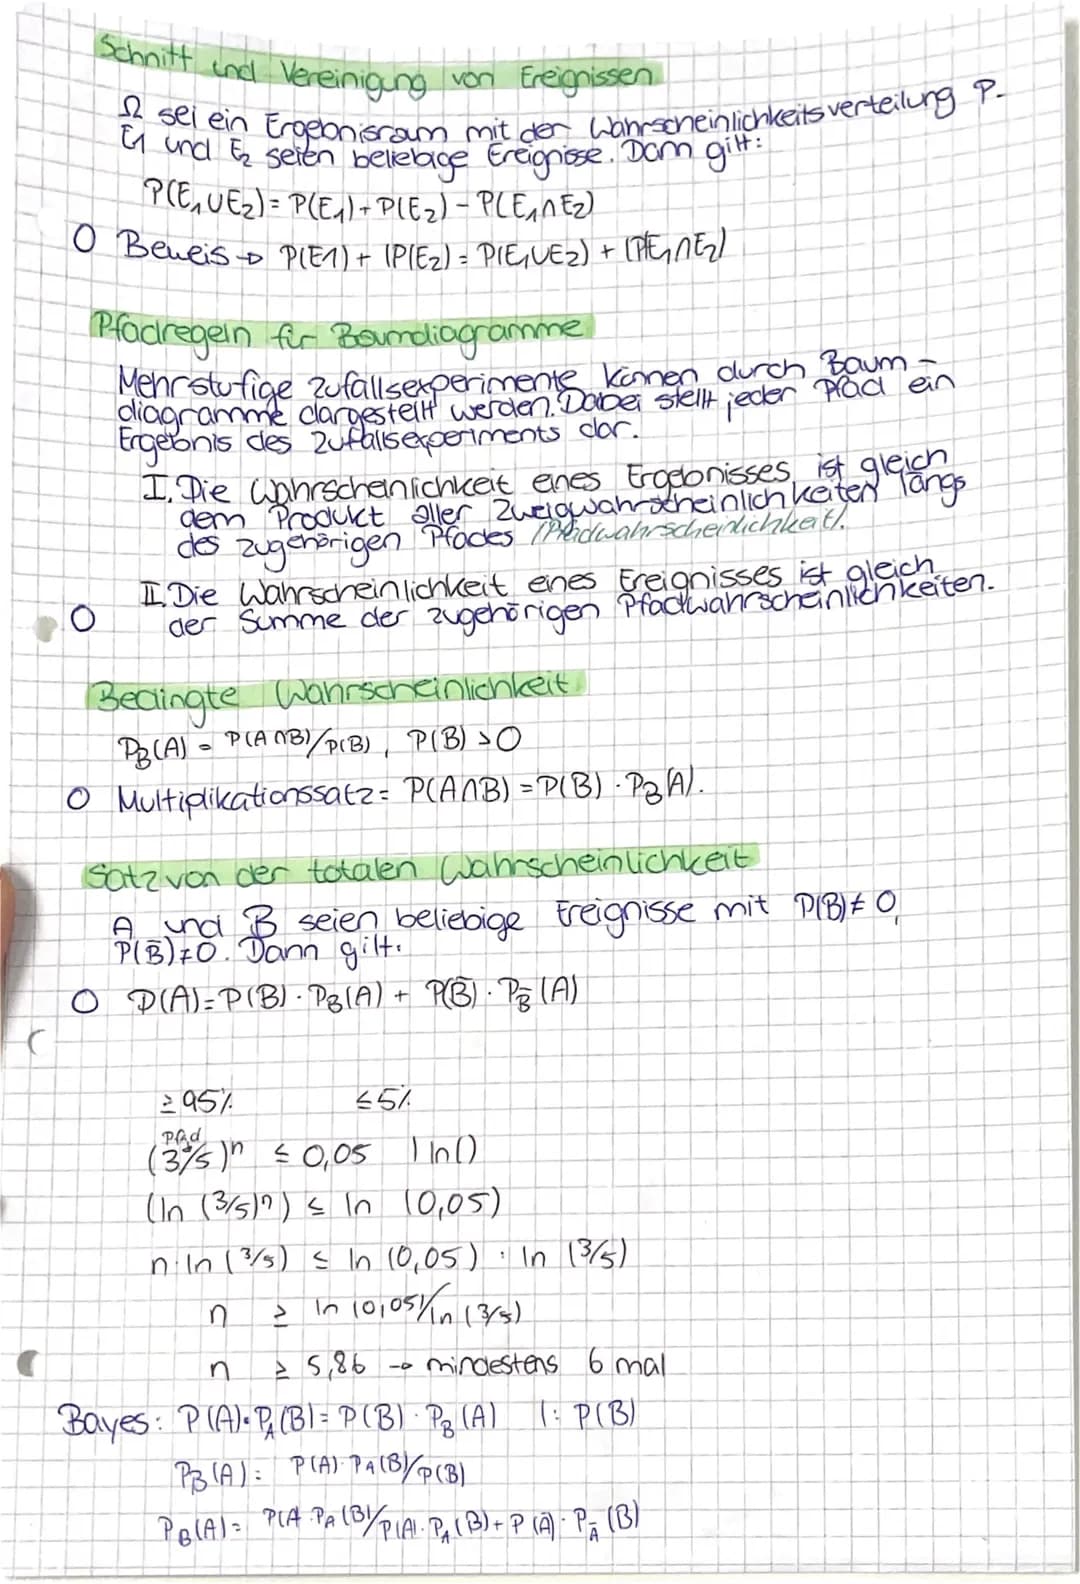 Schnitt und Vereinigung von Ereignissen
Ω sei ein Ergebnisraum mit der Wahrscheinlichkeitsverteilung P.
E1 und E₂ seien beliebige Ereignisse. Dann gilt:
P(E₁∪E₂) = P(E₁) + P(E₂) - P(E₁∩E₂)
O Beweis → P(E1) + (P(E₂) = P(E₁∪E2) + (P(E₁∩E₂)
Pfadregeln für Baumdiagramme
Mehrstufige Zufallsexperimente können durch Baum-
diagramme dargestellt werden. Dabei stellt jeder Pfad ein
Ergebnis des Zufallsexperiments dar.
I. Die Wahrscheinlichkeit eines Ergebnisses ist gleich
dem Produkt aller Zweigwahrscheinlichkeiten längs
des zugehörigen Pfades (Pfadwahrscheinlichkeit).
II. Die Wahrscheinlichkeit eines Ereignisses ist gleich
O der Summe der zugehörigen Pfadwahrscheinlichkeiten.
Bedingte Wahrscheinlichkeit
P_B(A) = P(A∩B)/P(B) , P(B) > 0
O Multiplikationssatz = P(A∩B) = P(B) · P_B(A).
Satz von der totalen Wahrscheinlichkeit
A und B seien beliebige Ereignisse mit P(B) ≠ 0,
P(B̄) ≠ 0. Dann gilt:
O P(A) = P(B) · P_B(A) + P(B̄) · P_B̄(A)
≥ 95% ≤ 5%
Pfad
(3/5)ⁿ ≤ 0,05 | ln()
(ln (3/5)ⁿ) ≤ ln (0,05)
n · ln (3/5) ≤ ln (0,05) : ln (3/5)
n ≥ ln (0,05)/ln (3/5)
n ≥ 5,86 → mindestens 6 mal
Bayes: P(A) · P_A(B) = P(B) · P_B(A) | : P(B)
P_B(A) = P(A) · P_A(B)/P(B)
P_B(A) = P(A · P_A(B)/P(A) · P_A(B) + P(Ā) · P_Ā(B)